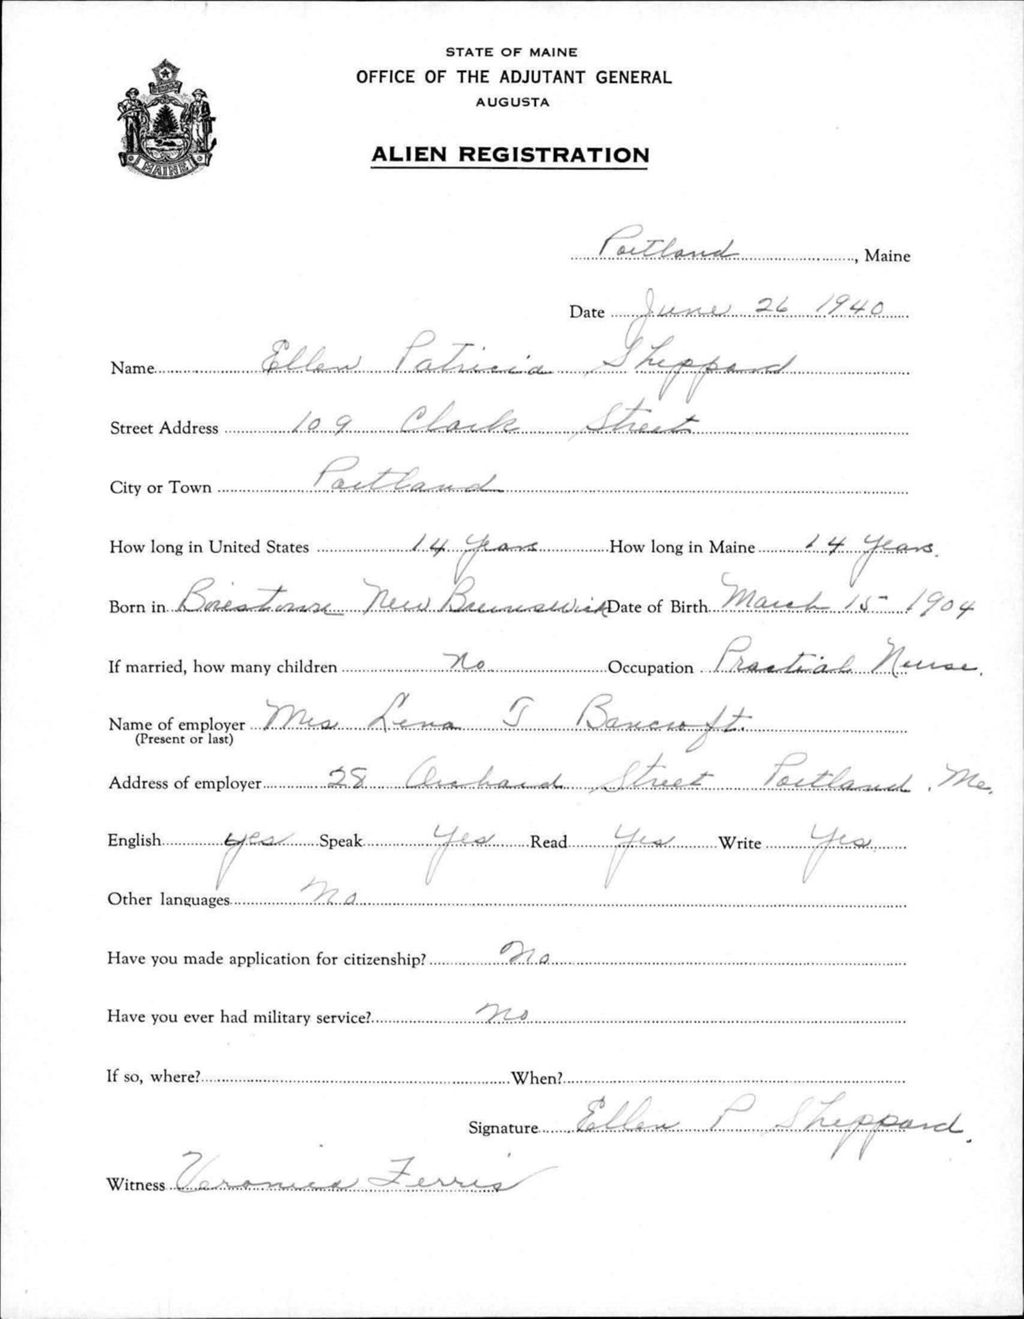 STATE OF MAINE
OFFICE OF THE ADJUTANT GENERAL
AUGUSTA
ALIEN REGISTRATION
MAINE
Portland, Maine
Date June 26 1940
Name Ellen Patricia Sheppard
Street Address 109 Clark Street
City or Town Portland
How long in United States 14 Years How long in Maine 14 Years.
Born in Boiestown New Brunswick Date of Birth March 15 1904
If married, how many children No Occupation Practial Nurse.
Name of employer Mrs Lena T Bancroft.
(Present or last)
Address of employer 28 Orchard Street Portland. Me.
English yes Speak Yes Read Yes Write Yes
Other languages No
Have you made application for citizenship? No
Have you ever had military service? No
If so, where? When?
Signature Ellen P Sheppard.
Witness Veronica Ferris